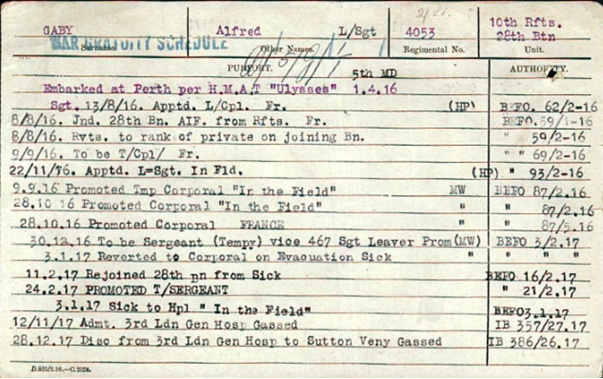 GABY Alfred L/Sgt 4053 10th Rfts. 28th Btn
WAR GRATUITY SCHEDULE
Surname. Other Names. Regimental No. Unit.
PURPORT. AUTHORITY.
5th MD
Embarked at Perth per H.M.A.T "Ulysses" 1.4.16
Sgt. 13/8/16. Apptd. L/Cpl. Fr. (HP) BEFO. 62/2-16
8/8/16. Jnd. 28th Bn. AIF. from Rfts. Fr. BEFO. 59/1-16
8/8/16. Rvts. to rank of private on joining Bn. " 59/2-16
9/9/16. To be T/Cpl/ Fr. " " 69/2-16
22/11/16. Apptd. L=Sgt. In Fld. (HP) " 93/2-16
9.9.16 Promoted Tmp Corporal "In the Field" MW BEFO 87/2.16
28.10 16 Promoted Corporal "In the Field" " " 87/2.16
28.10.16 Promoted Corporal FRANCE " " 87/5.16
30.12.16 To be Sergeant (Tempy) vice 467 Sgt Leaver Prom (MW) BEFO 3/2.17
3.1.17 Reverted to Corporal on Evacuation Sick " " " "
11.2.17 Rejoined 28th Bn from Sick BEFO 16/2.17
24.2.17 PROMOTED T/SERGEANT " 21/2.17
3.1.17 Sick to Hpl " In the Field" BEFO3.1.17
12/11/17 Admt. 3rd Ldn Gen Hosp Gassed IB 357/27.17
28.12.17 Disc from 3rd Ldn Gen Hosp to Sutton Veny Gassed IB 386/26.17
D.825/2.16.—C.2024.